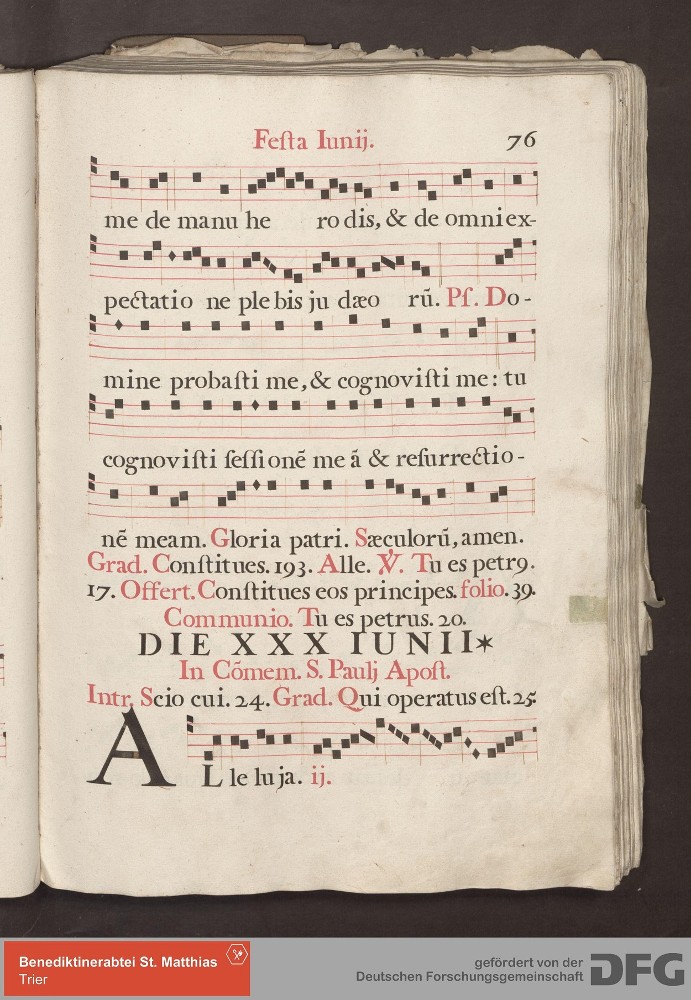 Feſta Iunij. 76
me de manu he rodis, & de omni ex-
pectatio ne ple bis ju dæo rũ. Pſ. Do-
mine probaſti me, & cognoviſti me: tu
cognoviſti ſeſſionẽ me ã & reſurrectio-
nẽ meam. Gloria patri. Sæculorũ, amen.
Grad. Conſtitues. 193. Alle. ℣. Tu es petr9.
17. Offert. Conſtitues eos principes. folio. 39.
Communio. Tu es petrus. 20.
DIE XXX IUNII*
In Cõmem. S. Paulj Apoſt.
Intr. Scio cui. 24. Grad. Qui operatus eſt. 25.
AL le lu ja. ij.
Benediktinerabtei St. Matthias
Trier
gefördert von der
Deutschen Forschungsgemeinschaft DFG